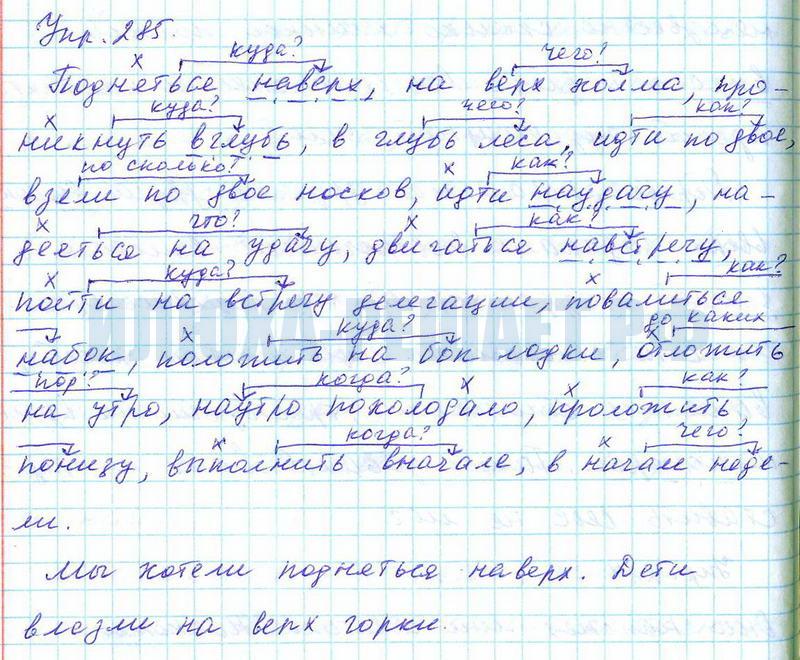 Упр. 285.
куда? чего?
Подняться наверх, на верх холма, про-
куда? чего? как?
никнуть вглубь, в глубь леса, идти по двое,
по сколько? как?
взяли по двое носков, идти наудачу, на-
что? как?
деяться на удачу, двигаться навстречу,
куда? как?
пойти на встречу делегации, повалиться
куда? до каких
набок, положить на бок лодки, отложить
пор? когда? как?
на утро, наутро похолодало, проложить,
когда? чего?
понизу, выполнить вначале, в начале неде-
ли.
Мы хотели подняться наверх. Дети
влезли на верх горки.